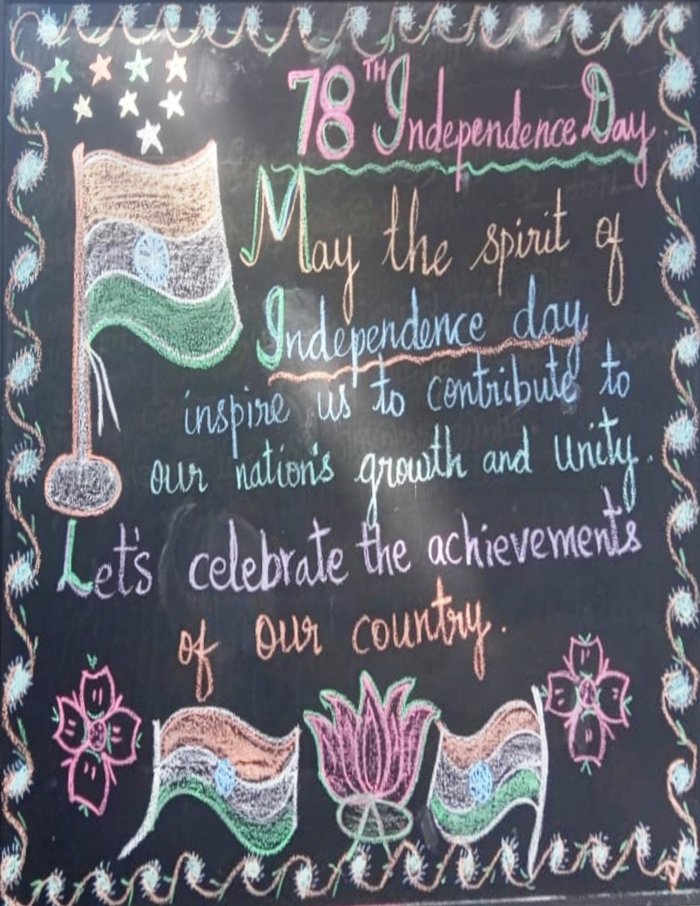 78TH Independence Day
May the spirit of
Independence day
inspire us to contribute to
our nation's growth and Unity.
Let's celebrate the achievements
of our country.